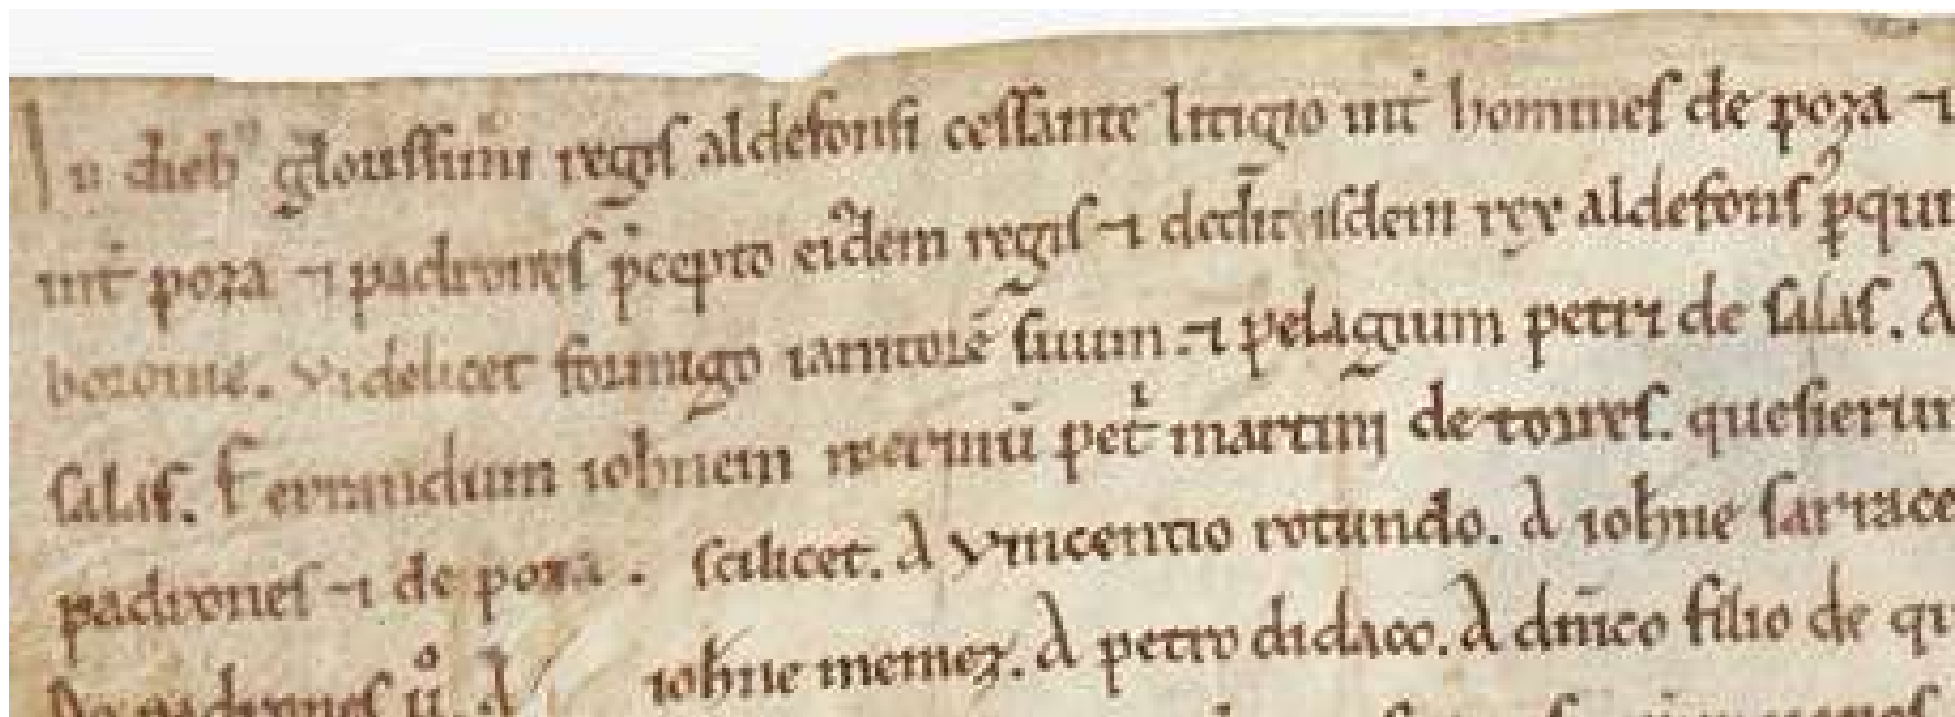 In dieb᷒ gl̄oissimi regis aldefonsi cessante litigio int̄ homines de poza ⁊
int̄ poza ⁊ padrones p̄cepto eiꝰdem regis ⁊ dedit isdem rex aldefonsꝰ ꝑqui
boroiue. videlicet fornigo ianitorē suum. ⁊ pelagium petri de salas. A
salas. Ferrandum ioh̄nem merinū pet̄ martinj de torres. quesierun
padrones ⁊ de poza. scilicet. A vincentio rotundo. A ioh̄ne sarrace
De padrones ů. A ioh̄ne mennez. A petro didaco. A dn̄ico filio de qu